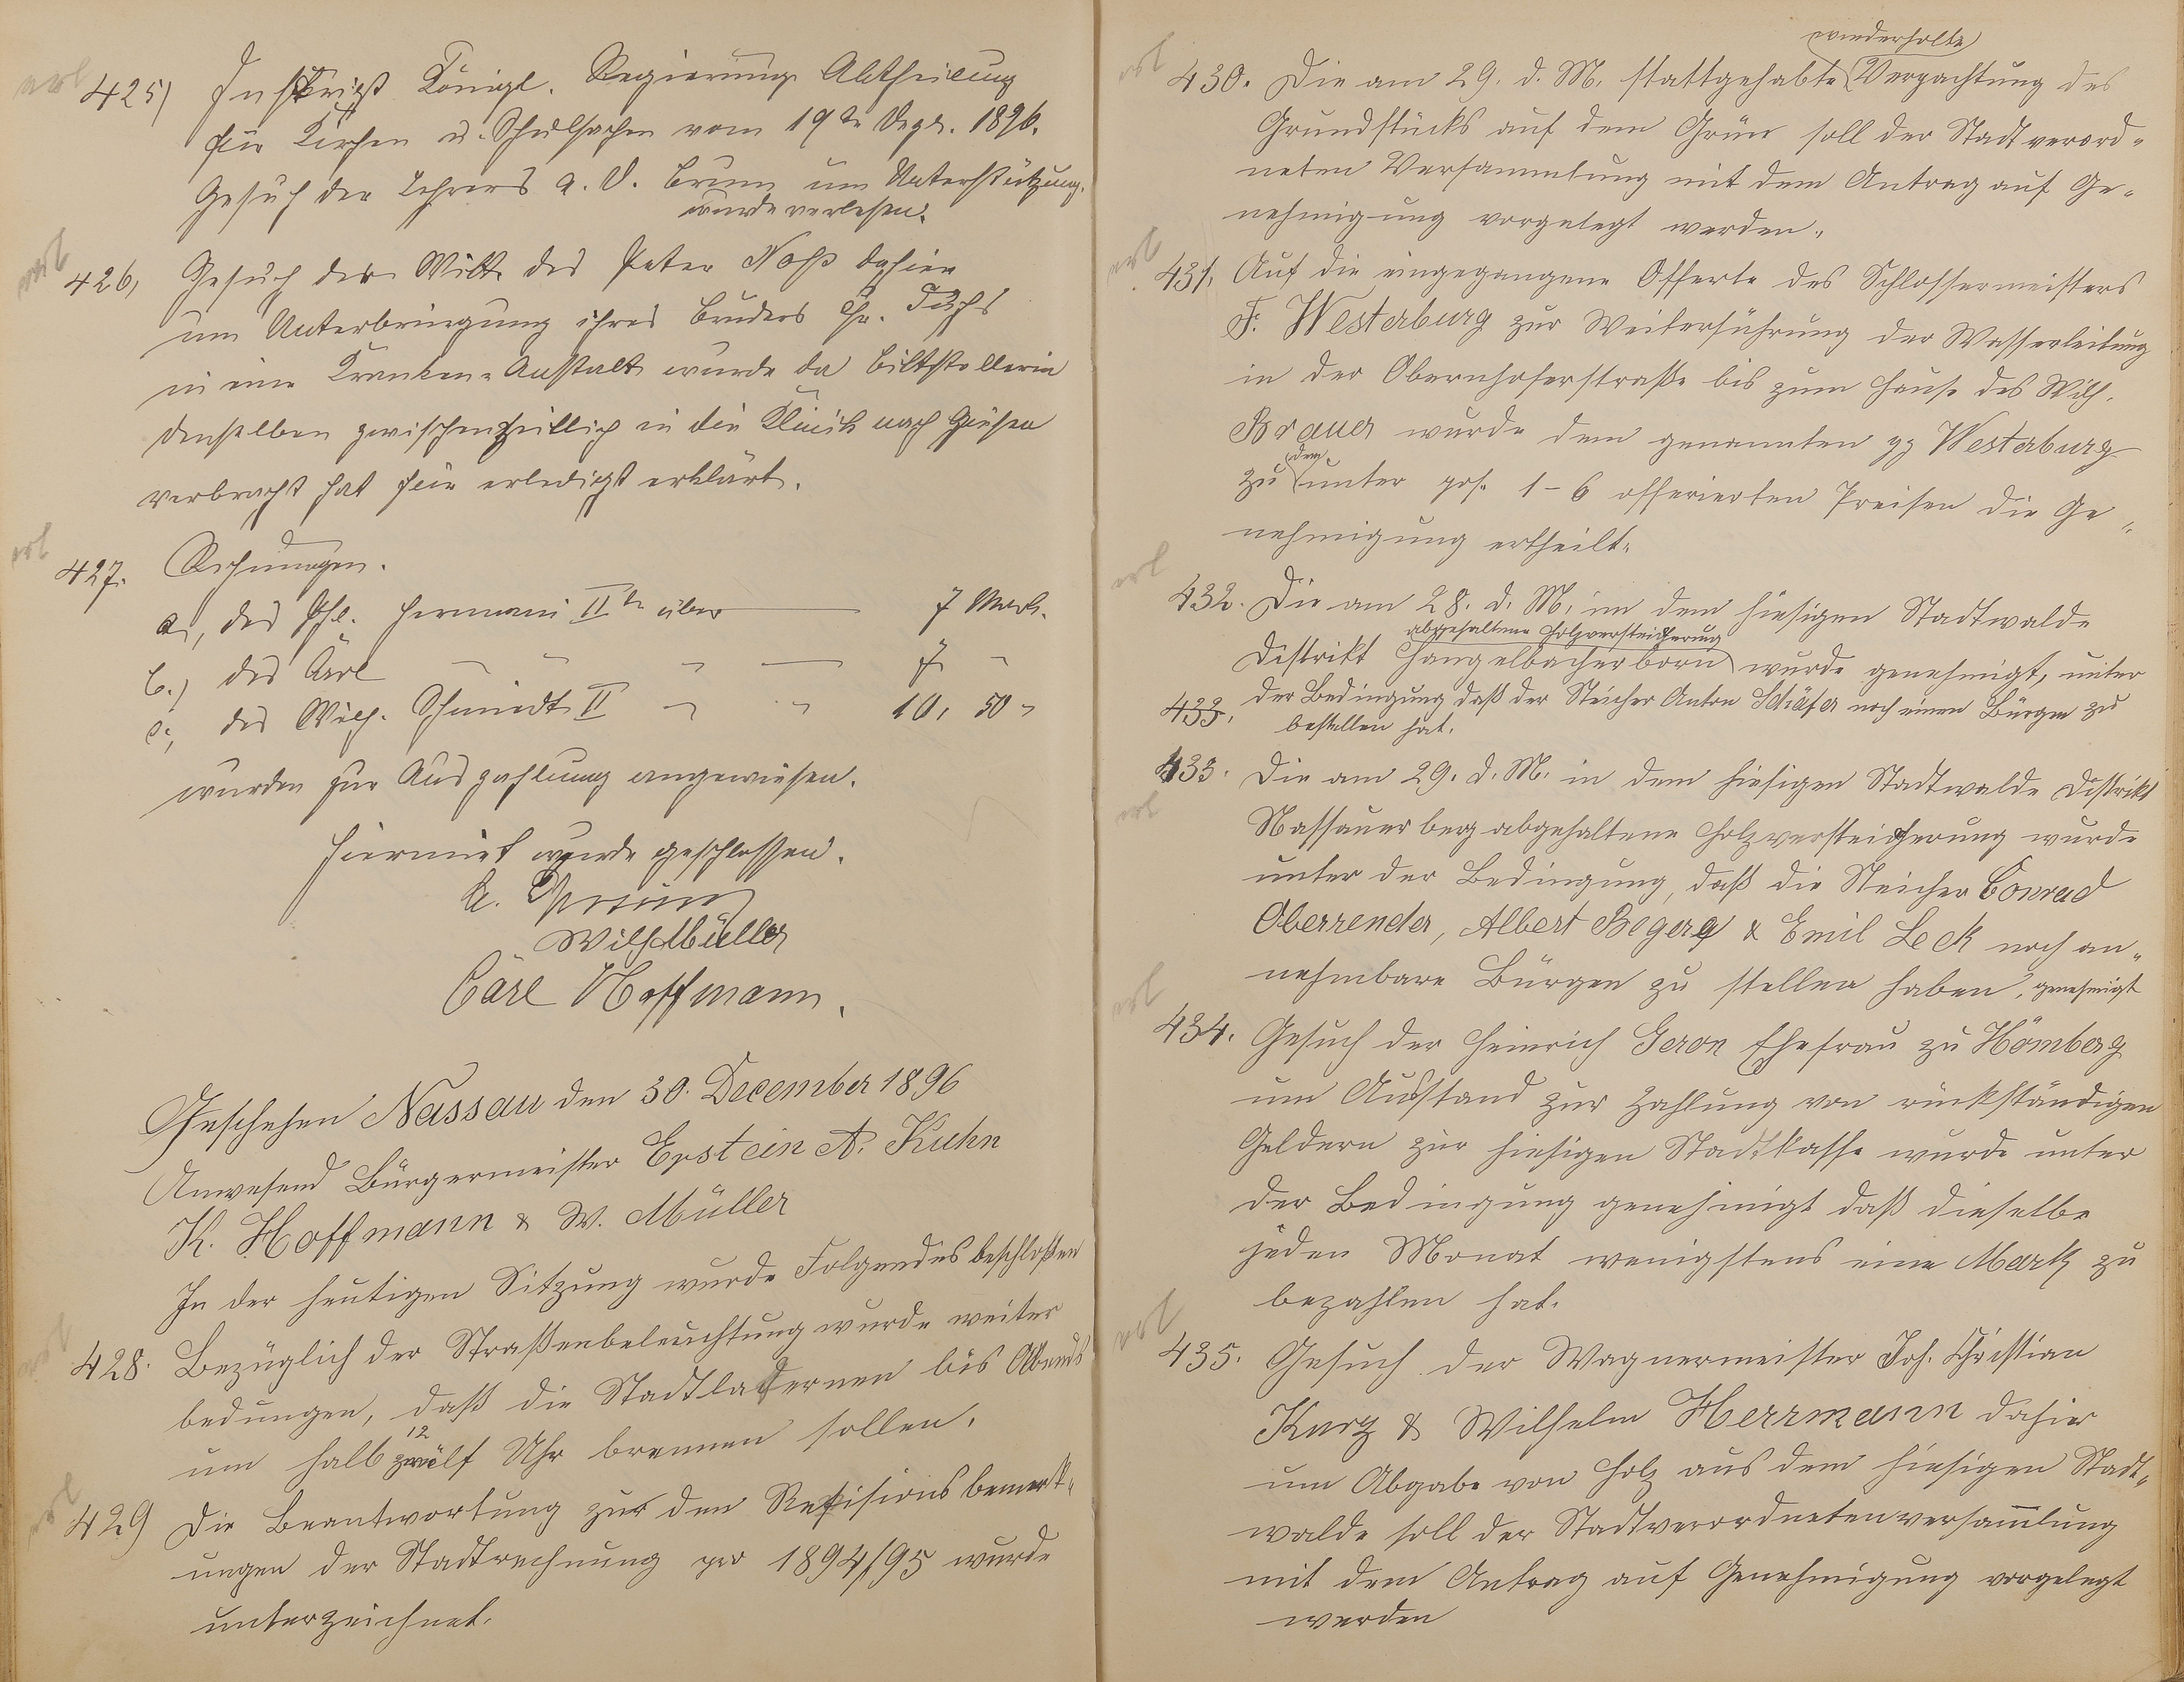 erl
425) Inskript Königl. Regierung Abtheilung
für Kirchen u. Schulsachen vom 19te Dezb. 1896.
Gesuch des Lehrers a. D. Brum um Unterstützung.
wurde verlesen.
erl
426, Gesuch der Witt. des Peter Noß dahier
um Unterbringung ihres Bruders Chr. Fuchs
in eine Kranken-Anstalt wurde da Bittstellerin
denselben zwischenzeitlich in die Klinik nach Gießen
verbracht hat für erledigt erklärt.
erl
427. Rechnungen.
a, des Phl. Hermani IIte über — 7 Mark.
b.) des Carl " " " — 7 "
c, des Wilh. Schmidt II " " 10, 50 "
wurden zur Auszahlung angewiesen.
Hiermit wurde geschlossen.
Wilh Müller
Carl Hoffmann.
Geschehen Nassau den 30. December 1896
Anwesend Bürgermeister Epstein A. Kuhn
K. Hoffmann & W. Müller
In der heutigen Sitzung wurde Folgendes beschloßen
erl
428. Bezüglich der Straßenbeleuchtung wurde weiter
bedungen, daß die Stadtlaternen bis Abends
12
um halb zwölf Uhr brennen sollen.
erl
429 Die Beantwortung zur den Revisionsbemerk-
ungen der Stadtrechnung pro 1894/95 wurde
unterzeichnet.
wiederholte
erl
430. Die am 29. d. M. stattgehabte Verpachtung des
Grundstücks auf dem Grün soll der Stadtverord-
neten Versammlung mit dem Antrag auf Ge-
nehmigung vorgelegt werden.
erl
431. Auf die eingegangene Offerte des Schlossermeisters
F. Westerburg zur Weiterführung der Wasserleitung
in der Obernhoferstraße bis zum Hause des Wilh.
Brauer wurde dem genannten pp Westerburg
den
zu unter pos. 1–6 offerierten Preisen die Ge-
nehmigung ertheilt.
erl
432. Die am 28. d. M. im dem hiesigen Stadtwalde
abgehaltene Holzversteicherung
Distrikt Hangelbacherborn wurde genehmigt, unter
433. der Bedingung daß der Steicher Anton Schäfer noch einen Bürgen zu
bestellen hat.
433. Die am 29. d. M. in dem hiesigen Stadtwalde Distrikt
erl
Nassauerberg abgehaltene Holzversteicherung wurde
unter der Bedingung, daß die Steicher Conrad
Oberrender, Albert Begere & Emil Leck noch an-
nehmbare Bürgen zu stellen haben, genehmigt
erl
434. Gesuch der Heinrich Geron Ehefrau zu Hömberg
um Ausstand zur Zahlung von rückständigen
Geldern zur hiesigen Stadtkasse wurde unter
der Bedingung genehmigt daß dieselbe
jeden Monat wenigstens eine Mark zu
bezahlen hat.
erl
435. Gesuch der Wagnermeister Joh. Christian
Kurz & Wilhelm Herrmann dahier
um Abgabe von Holz aus dem hiesigen Stadt-
walde soll der Stadtverordnetenversammlung
mit dem Antrag auf Genehmigung vorgelegt
werden